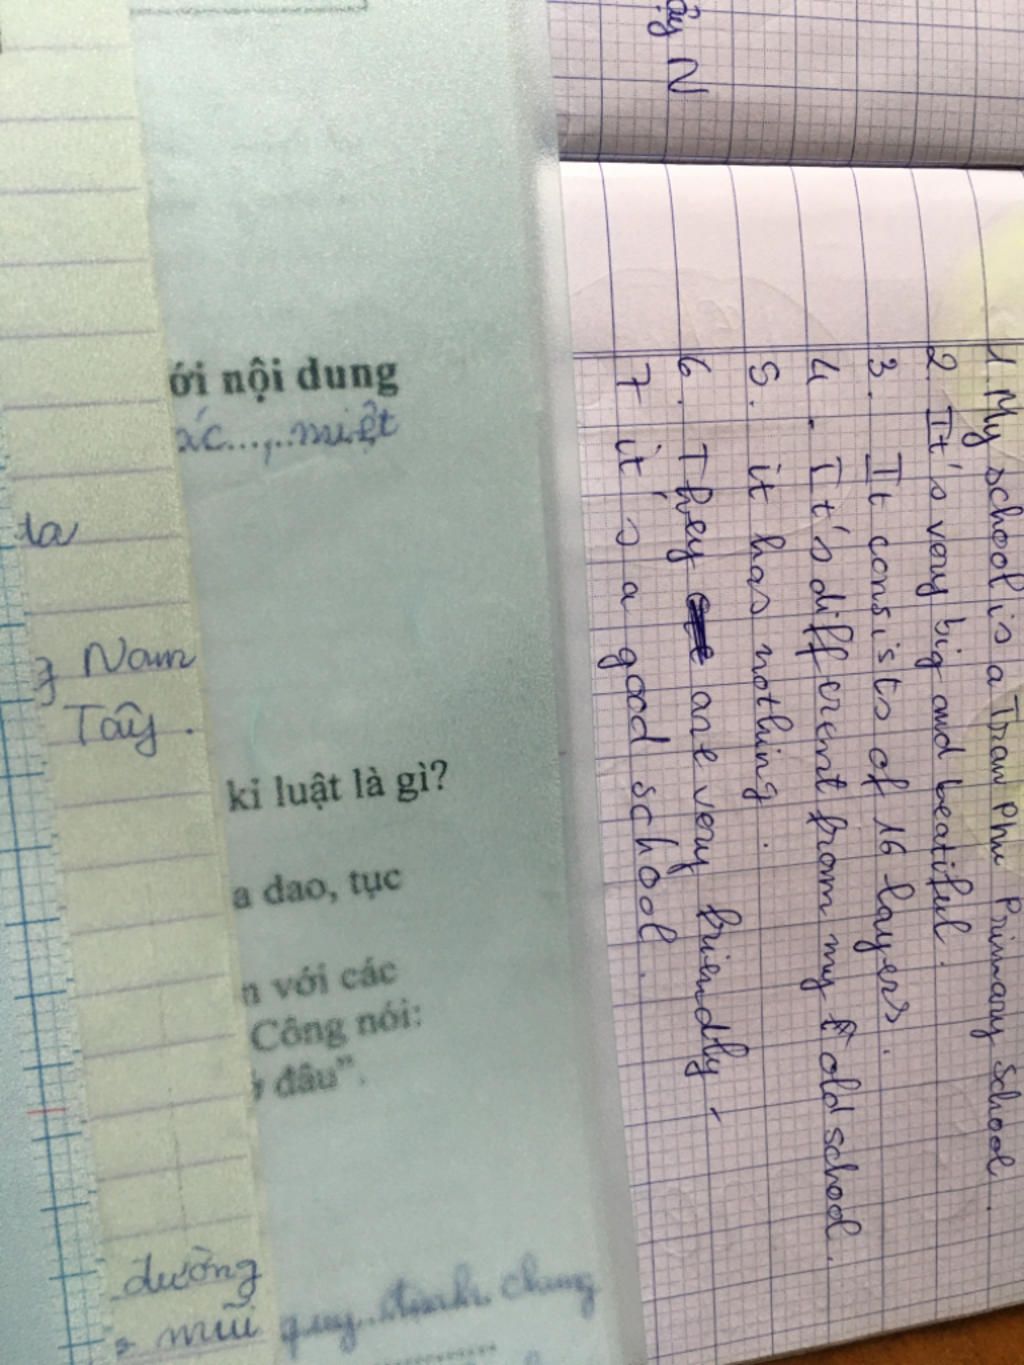 ây N
1. My school is a Tran Phu Primary School.
2. It's very big and beatiful.
3. It consists of 16 layers.
4. It's different from my old school.
5. it has nothing.
6. They are very friendly.
7 it's a good school.
ới nội dung
ác...,..miệt
kỉ luật là gì?
a dao, tục
n với các
Công nói:
đâu".
quy..định. chung
ta
Nam
Tây.
đường
mũi